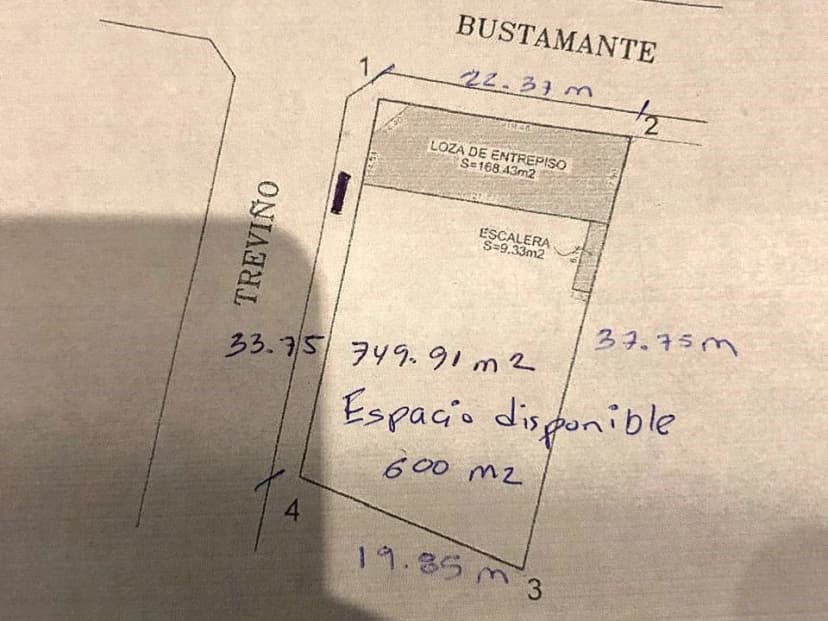 BUSTAMANTE
1
22.37 m
2
LOZA DE ENTREPISO
S=168.43m2
ESCALERA
S=9.33m2
TREVIÑO
33.75
749.91 m2
37.75 m
Espacio disponible
600 m2
4
19.85 m
3